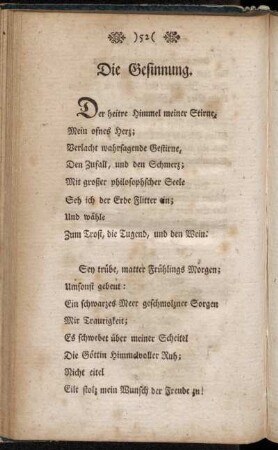 )52(
Die Gesinnung.
Der heitre Himmel meiner Stirne,
Mein ofnes Herz;
Verlacht wahrsagende Gestirne,
Den Zufall, und den Schmerz;
Mit grosser philosophscher Seele
Seh ich der Erde Flitter an;
Und wähle
Zum Trost, die Tugend, und den Wein.
Sey trübe, matter Frühlings Morgen;
Umsonst gebeut:
Ein schwarzes Meer geschmolzner Sorgen
Mir Traurigkeit;
Es schwebet über meiner Scheitel
Die Göttin Himmelvoller Ruh;
Nicht eitel
Eilt stolz mein Wunsch der Freude zu!